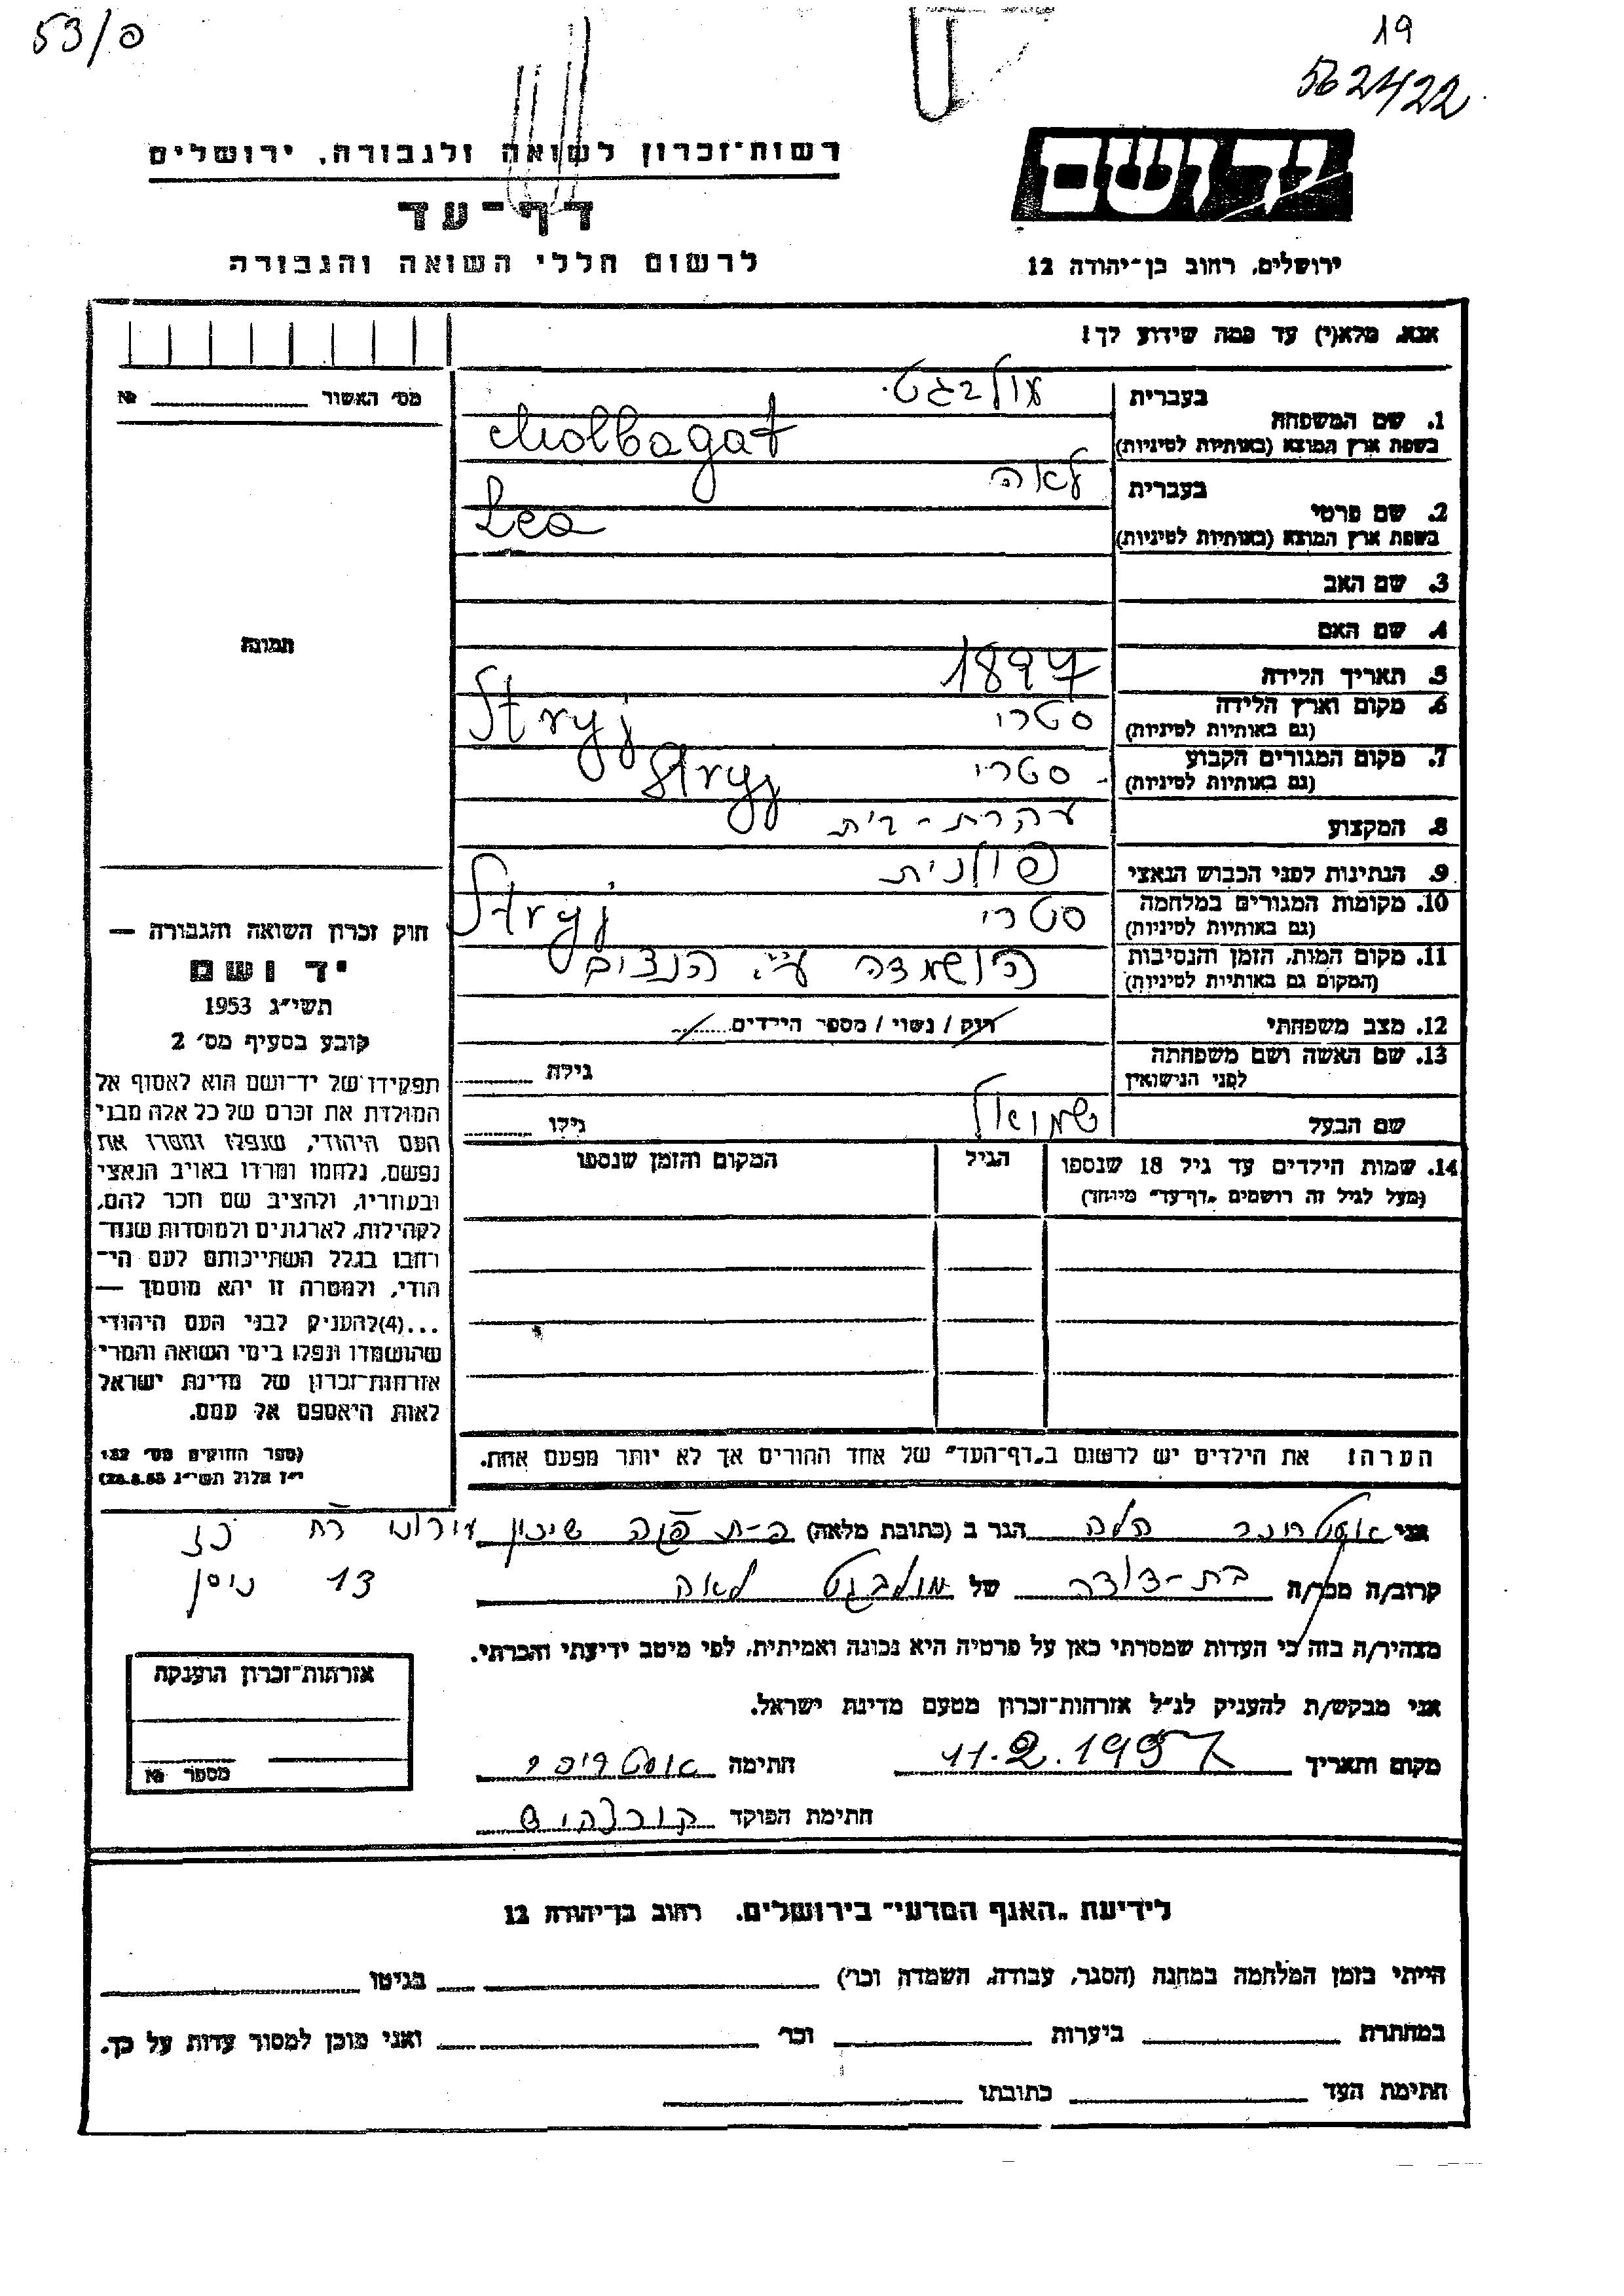 53/פ
19
562422
רשות־זכרון לשואה ולגבורה, ירושלים
דף־עד
לרשום חללי השואה והגבורה
יד ושם
ירושלים, רחוב בן־יהודה 12
אנא, מלא(י) עד כמה שידוע לך!
מס׳ האשור № 
תמונה
חוק זכרון השואה והגבורה —
יד ושם
תשי״ג 1953
קובע בסעיף מס׳ 2
תפקידו של יד־ושם הוא לאסוף אל
המולדת את זכרם של כל אלה מבני
העם היהודי, שנפלו ומסרו את
נפשם, נלחמו ומרדו באויב הנאצי
ובעוזריו, ולהציב שם וזכר להם,
לקהילות, לארגונים ולמוסדות שנח־
רבו בגלל השתייכותם לעם הי־
הודי, ולמטרה זו יהא מוסמך —
...(4) להעניק לבני העם היהודי
שהושמדו ונפלו בימי השואה והמרי
אזרחות־זכרון של מדינת ישראל
לאות היאספם אל עמם.
(ספר החוקים מס׳ 132
י״ז אלול תשי״ג 28.8.53)
בעברית מולבגט
1. שם המשפחה
בשפת ארץ המוצא (באותיות לטיניות) Molbagat
בעברית לאה
2. שם פרטי
בשפת ארץ המוצא (באותיות לטיניות) Lea
3. שם האב
4. שם האם
5. תאריך הלידה 1897
6. מקום וארץ הלידה סטרי Stryj
(גם באותיות לטיניות)
7. מקום המגורים הקבוע סטרי Stryj
(גם באותיות לטיניות)
8. המקצוע עקרת-בית
9. הנתינות לפני הכבוש הנאצי פולנית
10. מקומות המגורים במלחמה סטרי Stryj
(גם באותיות לטיניות)
11. מקום המות, הזמן והנסיבות הושמדה ע״י הנצים
(המקום גם באותיות לטיניות)
12. מצב משפחתי רוק / נשוי / מספר הילדים
13. שם האשה ושם משפחתה גילה
לפני הנישואין
שם הבעל שמואל גילו
14. שמות הילדים עד גיל 18 שנספו הגיל המקום והזמן שנספו
(מעל לגיל זה רושמים „דף־עד״ מיוחד)
הערה: את הילדים יש לרשום ב„דף־העד״ של אחד ההורים אך לא יותר מפעם אחת.
אני הלה הגר ב (כתובת מלאה) פ-ת קוה שיכון עירוני רח כז
קרוב/ה מכר/ה בת-דודה של מולבגט לאה 13 ניסן
מצהיר/ה בזה כי העדות שמסרתי כאן על פרטיה היא נכונה ואמיתית, לפי מיטב ידיעתי והכרתי.
אני מבקש/ת להעניק לנ״ל אזרחות־זכרון מטעם מדינת ישראל.
מקום ותאריך 11.2.1957 חתימה
חתימת הפוקד
אזרחות־זכרון הוענקה
מספר №
לידיעת „האגף המדעי״ בירושלים, רחוב בן־יהודה 12
הייתי בזמן המלחמה במחנה (הסגר, עבודה, השמדה וכו׳) בגיטו
במחתרת ביערות וכו׳ ואני מוכן למסור עדות על כך.
חתימת העד כתובתו